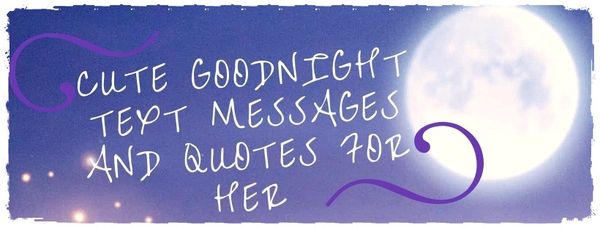 CUTE GOODNIGHT
TEXT MESSAGES
AND QUOTES FOR
HER